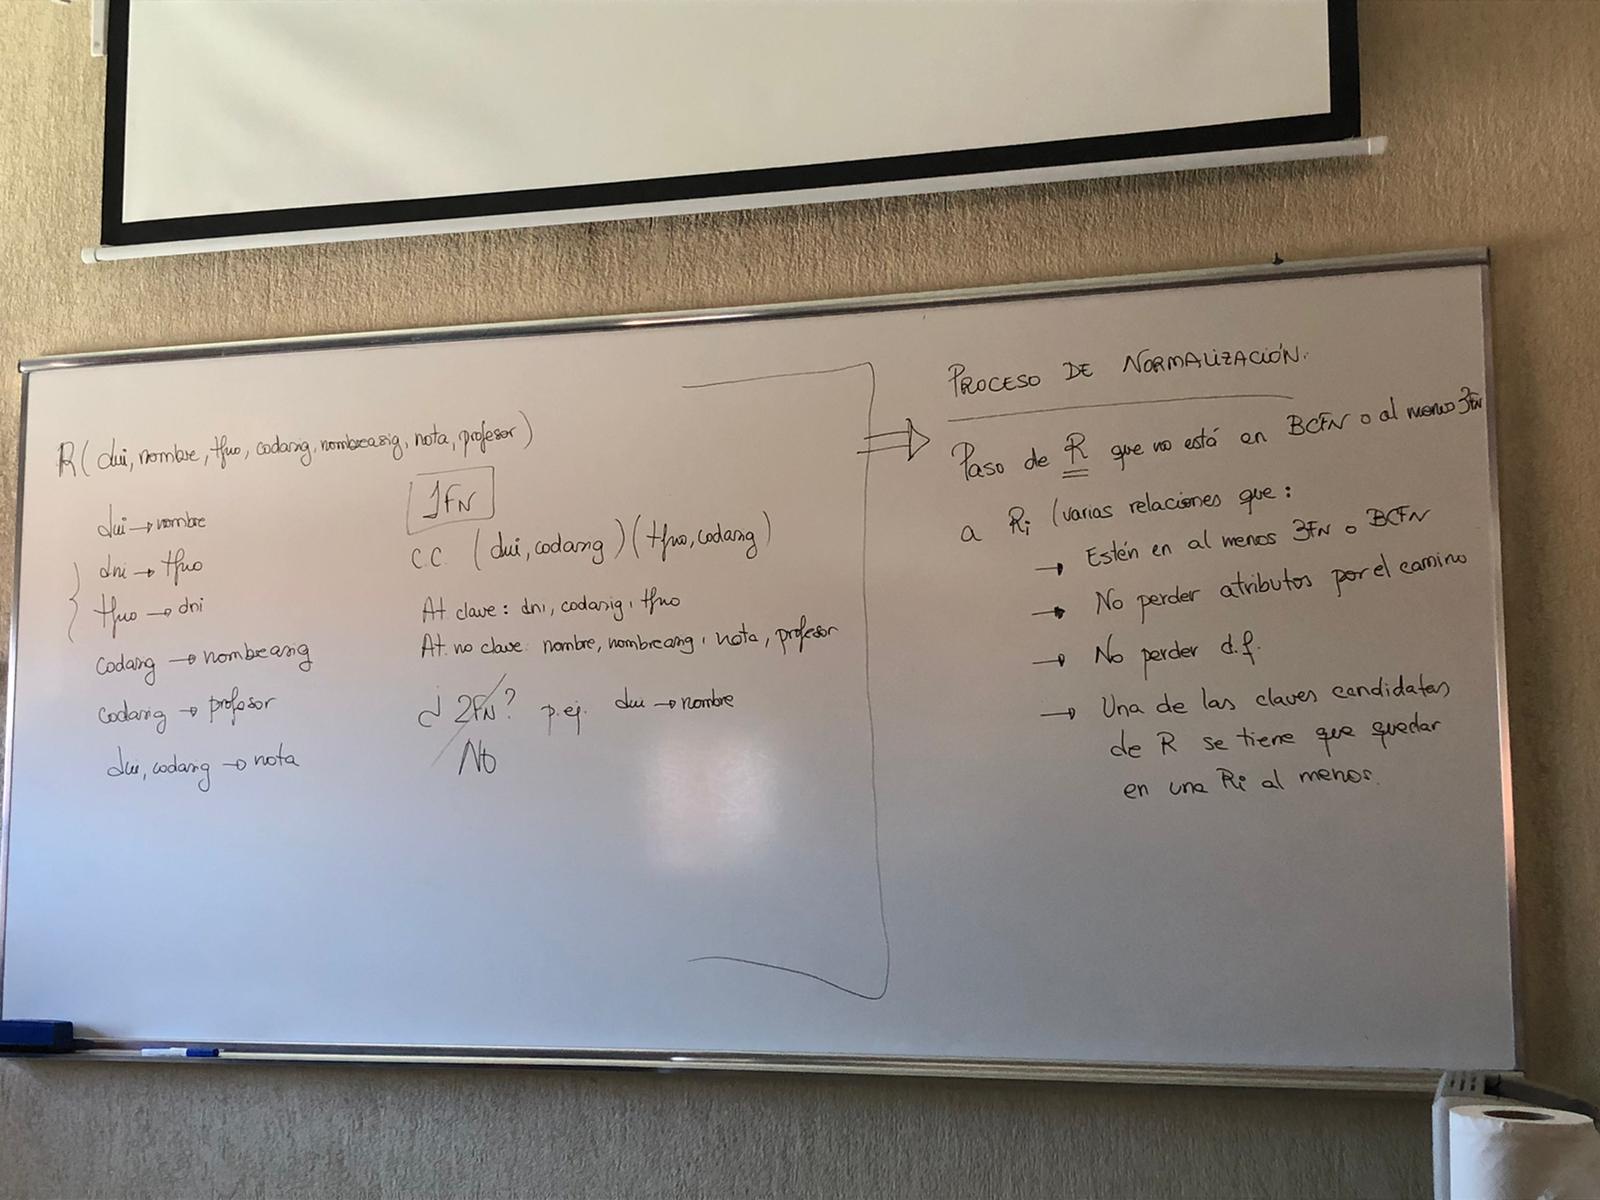 R(dni, nombre, tfno, codasig, nombreasig, nota, profesor)
dni → nombre
dni → tfno
tfno → dni
codasig → nombreasig
codasig → profesor
dni, codasig → nota
1FN
C.C. (dni, codasig) (tfno, codasig)
At clave: dni, codasig, tfno
At. no clave: nombre, nombreasig, nota, profesor
¿2FN? p.ej. dni → nombre
No
PROCESO DE NORMALIZACIÓN.
Paso de R que no está en BCFN o al menos 3FN
a Ri (varias relaciones que:
→ Estén en al menos 3FN o BCFN
→ No perder atributos por el camino
→ No perder d.f.
→ Una de las claves candidatas
de R se tiene que quedar
en una Ri al menos.